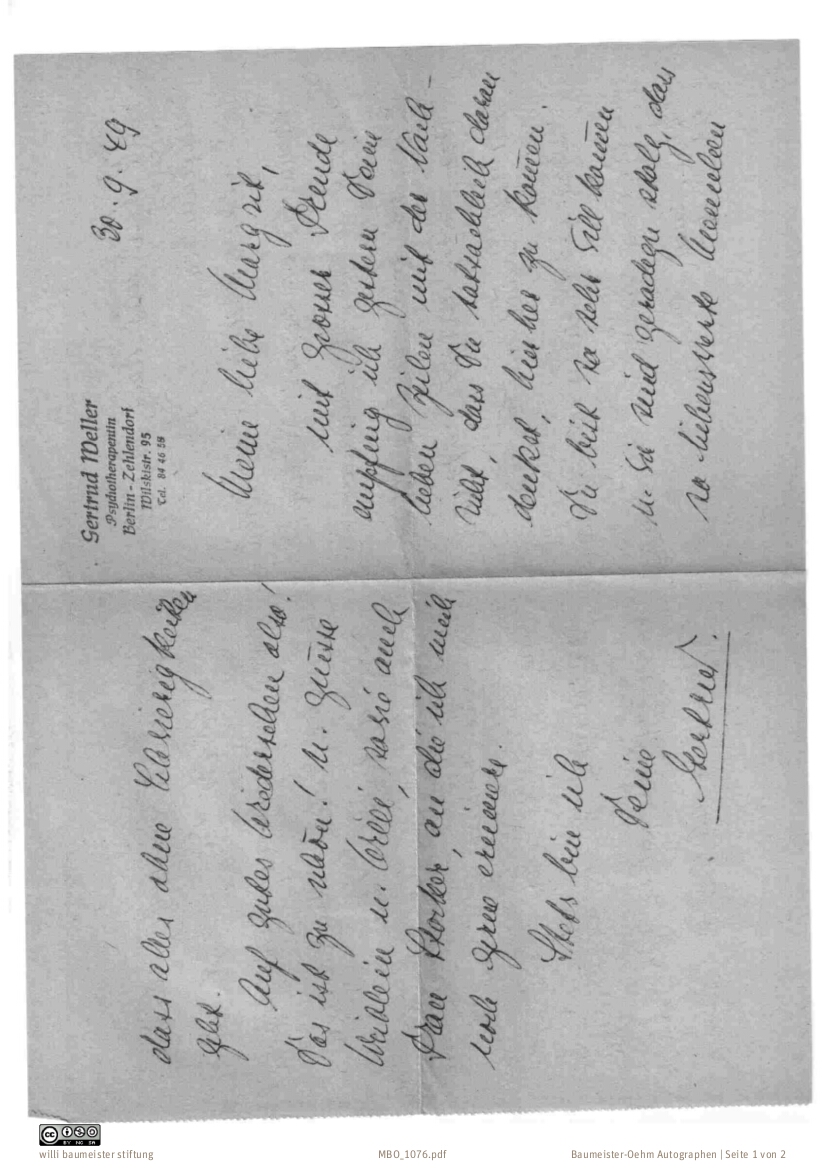 Gertrud Weller
Psychotherapeutin
Berlin-Zehlendorf
Wilskistr. 95
Tel. 84 46 58
30. 9. 49
Meine liebe Margrit,
mit grosser Freude
empfing ich gestern Deine
lieben Zeilen mit der Nach-
richt, dass Du tatsächlich daran
denkst, hierher zu kom̅en.
Du bist so sehr will kom̅en
u. Ihr sind geradezu stolz, dass
so liebenswerte Menschen
dass alles ohne Schwierigkeiten
geht.
Auf gutes Wiedersehen also!
Das ist zu schön! U. grüsse
Weiblein u. Willi, sowie auch
Frau Storker, an die ich mich
noch gerne erinnere.
Stets bin ich
Deine
Gertrud.
willi baumeister stiftung
MBO_1076.pdf
Baumeister-Oehm Autographen | Seite 1 von 2